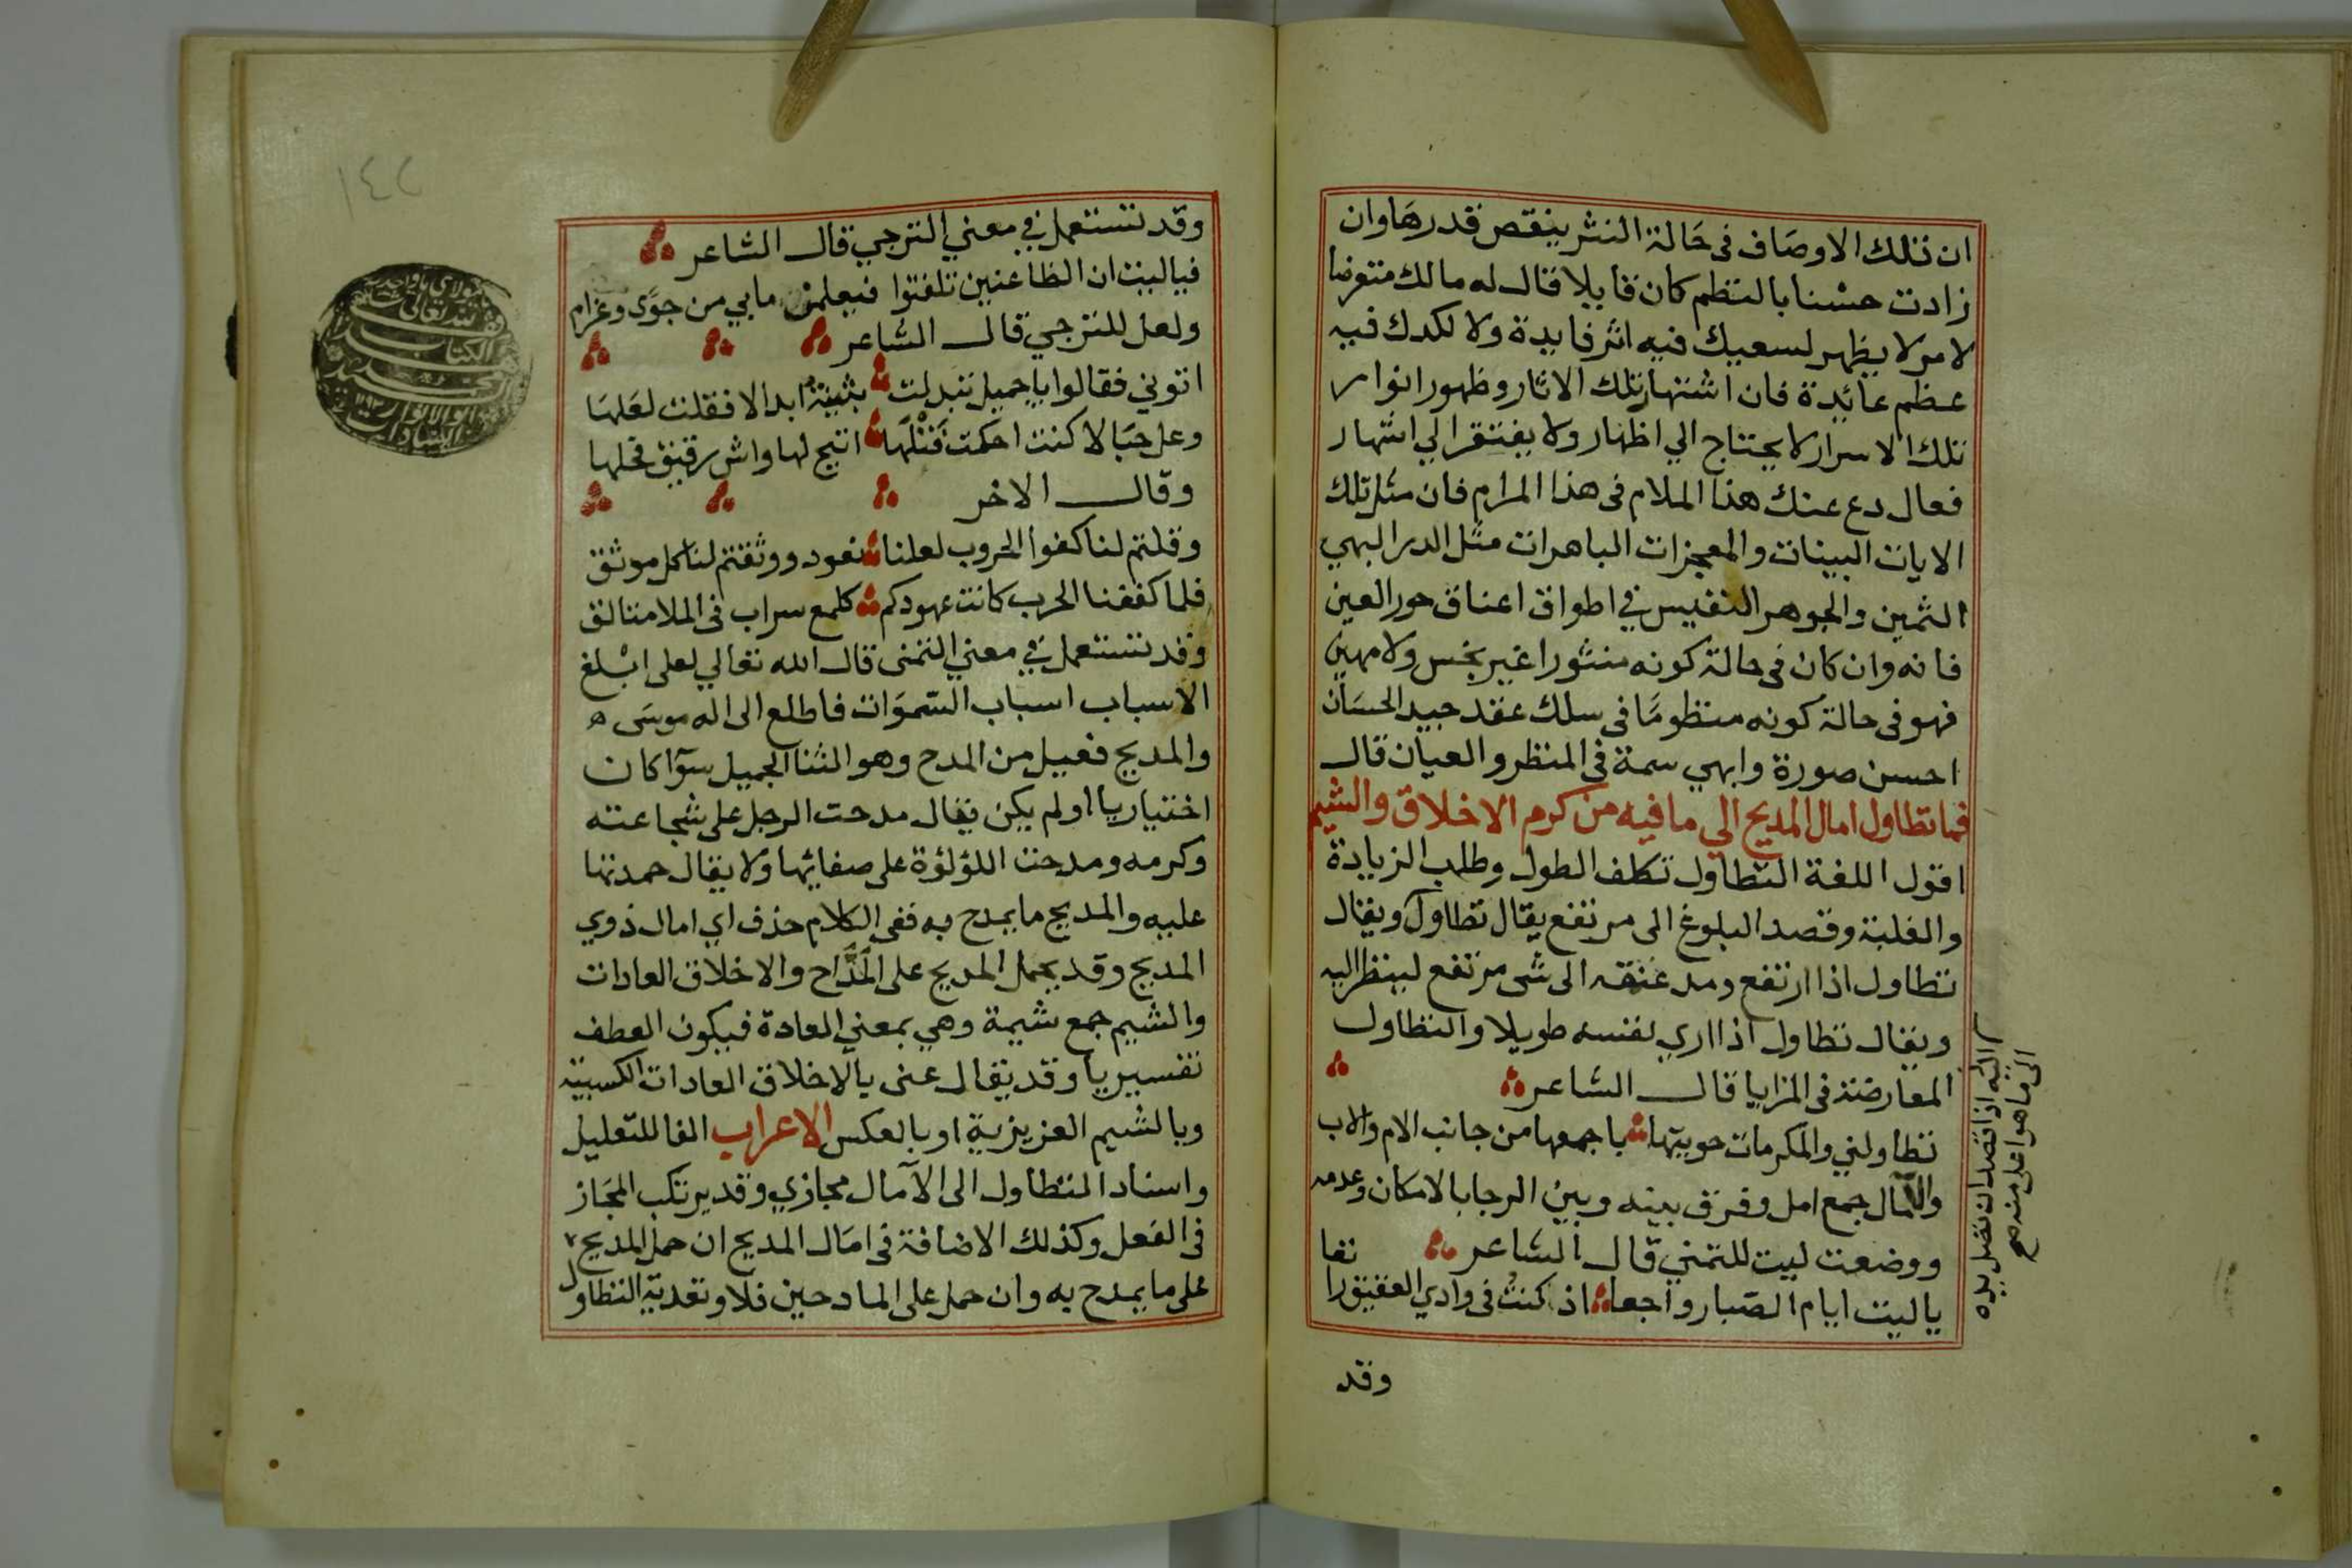 ان تلك الاوصاف فى حالة النثر ينقص قدرها وان
زادت حسنا بالنظم كان قايلا قال له مالك متعرضا
لامر لا يظهر لسعيك فيه اثر فايدة ولا لكدك فيه
عظم عائدة فان اشتهار تلك الاثار وظهور انوار
تلك الاسرار لا يحتاج الي اظهار ولا يفتقر الي اشتهار
فعال دع عنك هذا الملام فى هذا المرام فان مثل تلك
الايات البينات والمعجزات الباهرات مثل الدر البهي
الثمين والجوهر النفيس في اطواق اعناق حور العين
فانه وان كان فى حالة كونه منثورا غير بخس ولا مهين
فهو فى حالة كونه منظومًا فى سلك عقد جيد الحسان
احسن صورة وابهي سمة فى المنظر والعيان قال
فما تطاول امال المديح الي ما فيه من كرم الاخلاق والشيم
اقول اللغة التطاول تكلف الطول وطلب الزيادة
والغلبة وقصد البلوغ الى مرتفع يقال تطاول ويقال
تطاول اذا ارتفع ومد عنقه الى شى مرتفع لينظر اليه
ويقال تطاول اذا اري نفسه طويلا والتطاول
المعارضة فى المزايا قال الشاعر
تطاولني والمكرمات حويتها باجمعها من جانب الام والاب
والآمال جمع امل وفرق بينه وبين الرجا بالامكان وعدمه
ووضعت ليت للتمني قال الشاعر نقا
ياليت ايام الصبا رواجعا اذ كنت فى وادي العقيق را
وقد
اليه اذا قصد ان تصل يده
الى ما هو اعلى منه صح
١٤٢
وقد تستعمل في معني الترجي قال الشاعر
فياليت ان الظاعنين تلفتوا فيعلمن مابي من جوًى وغرام
ولعل للترجي قال الشاعر
اتوني فقالوا يا جميل تبدلت بثينة ابدالا فقلت لعلها
وعل حبالا كنت احكمت فتلها اتيح لها واش رقيق فحلها
وقال الاخر
وقلتم لنا كفوا الحروب لعلنا نعود ووثقتم لنا كل موثق
فلما كففنا الحرب كانت عهودكم كلمع سراب فى الملا متالق
وقد تستعمل في معني التمنى قال الله تعالي لعلى ابلغ
الاسباب اسباب السموات فاطلع الى اله موسى ه
والمديح فعيل من المدح وهو الثنا الجميل سوآ كان
اختياريا اولم يكن يقال مدحت الرجل على شجاعته
وكرمه ومدحت اللؤلؤة على صفائها ولا يقال حمدتها
عليه والمديح ما يمدح به ففى الكلام حذف اي امال ذوي
المديح وقد يحمل المديح على المَدَّاح والاخلاق العادات
والشيم جمع شيمة وهي بمعني العادة فيكون العطف
تفسيريا وقد يقال عنى بالاخلاق العادات الكسبية
وبالشيم الغريزية اوبالعكس الاعراب الفا للتعليل
واسناد التطاول الى الآمال مجازي وقد يرتكب المجاز
فى الفعل وكذلك الاضافة فى امال المديح ان حمل المديح
على ما يمدح به وان حمل على المادحين فلا وتعدية التطاول